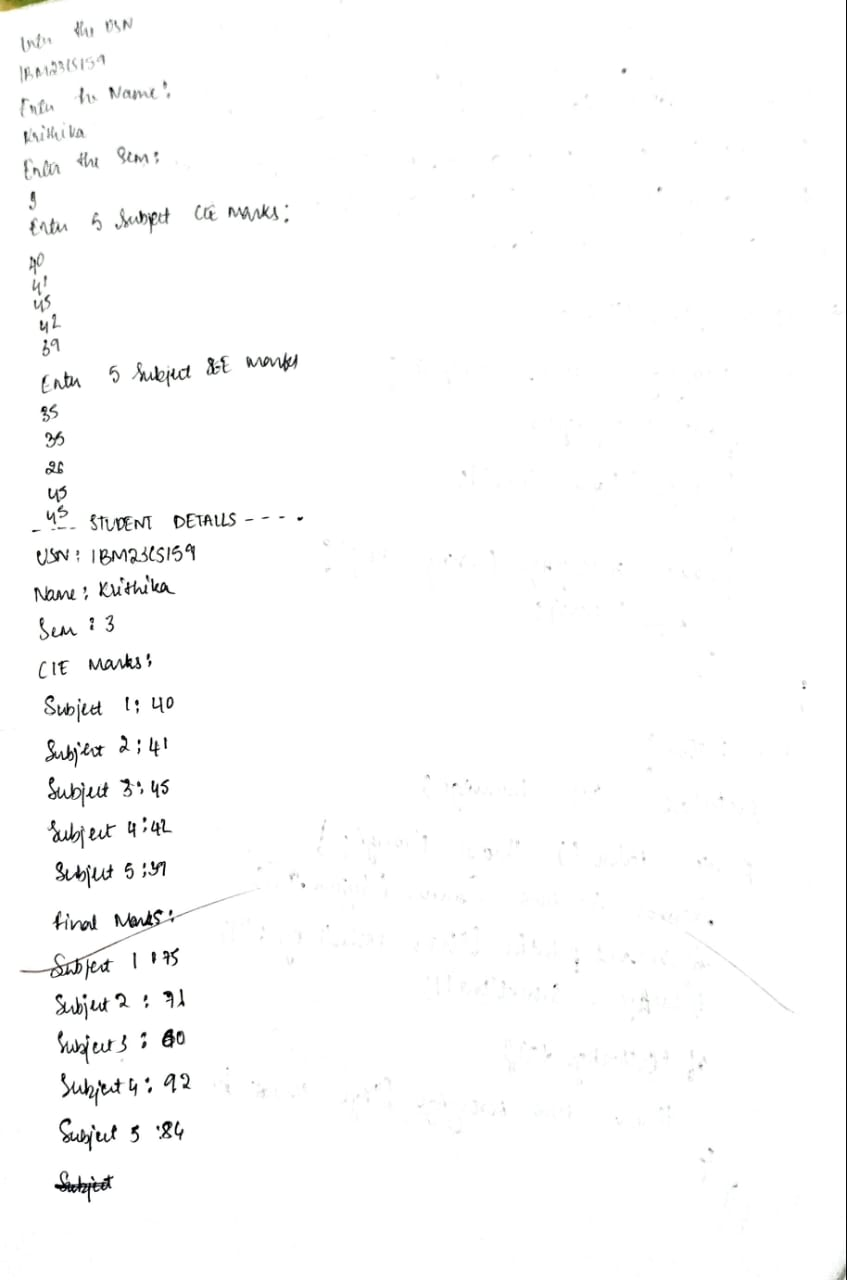 Enter the USN
1BM23CS159
Enter the Name:
Krithika
Enter the Sem:
3
Enter 5 Subject CIE Marks:
40
41
45
42
39
Enter 5 Subject SEE marks
35
35
26
45
45
---- STUDENT DETAILS ----
USN: 1BM23CS159
Name: Krithika
Sem : 3
CIE Marks:
Subject 1: 40
Subject 2: 41
Subject 3: 45
Subject 4: 42
Subject 5: 39
Final Marks:
Subject 1: 75
Subject 2 : 71
Subject 3 : 60
Subject 4 : 92
Subject 5 : 84
Subject